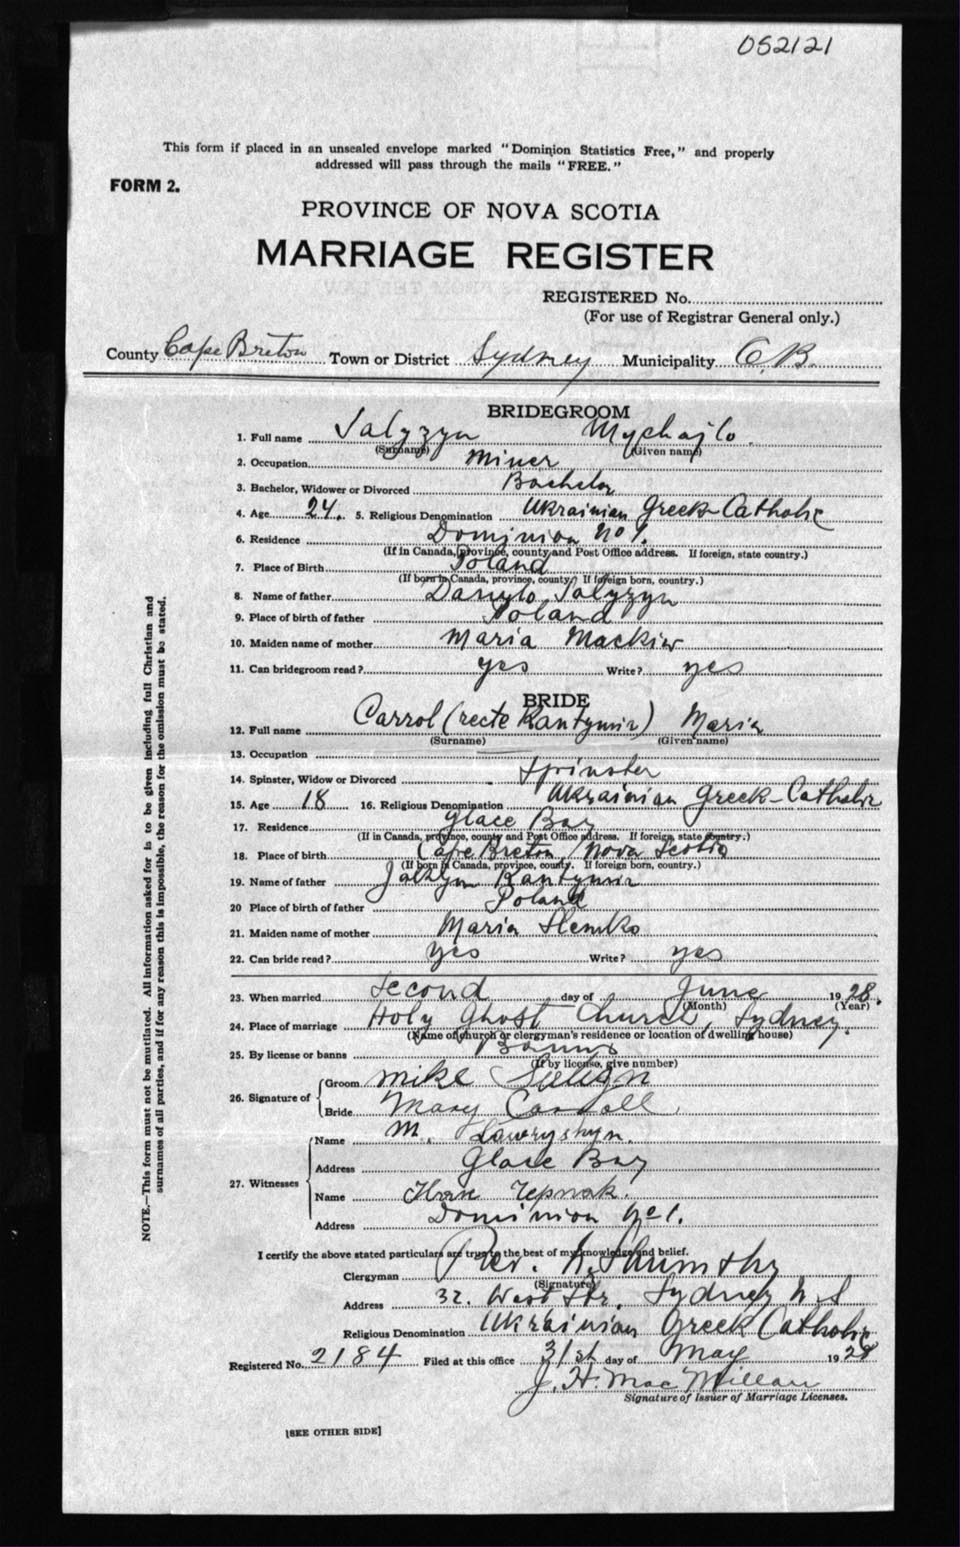 052121
This form if placed in an unsealed envelope marked "Dominion Statistics Free," and properly
addressed will pass through the mails "FREE."
FORM 2.
PROVINCE OF NOVA SCOTIA
MARRIAGE REGISTER
REGISTERED No.
(For use of Registrar General only.)
County Cape Breton Town or District Sydney Municipality C.B.
BRIDEGROOM
1. Full name Salyzyn Mychajlo
(Surname) (Given name)
2. Occupation Miner
3. Bachelor, Widower or Divorced Bachelor
4. Age 24. 5. Religious Denomination Ukrainian Greek-Catholic
6. Residence Dominion No 1.
(If in Canada, province, county and Post Office address. If foreign, state country.)
7. Place of Birth Poland
(If born in Canada, province, county. If foreign born, country.)
8. Name of father Danylo Salyzyn
9. Place of birth of father Poland
10. Maiden name of mother Maria Mackiw
11. Can bridegroom read? yes Write? yes
BRIDE
12. Full name Carrol (recte Kantymir) Maria
(Surname) (Given name)
13. Occupation
14. Spinster, Widow or Divorced Spinster
15. Age 18 16. Religious Denomination Ukrainian Greek-Catholic
17. Residence Glace Bay
(If in Canada, province, county and Post Office address. If foreign, state country.)
18. Place of birth Cape Breton Nova Scotia
(If born in Canada, province, county. If foreign born, country.)
19. Name of father Kantymir
20 Place of birth of father Poland
21. Maiden name of mother Maria Slemko
22. Can bride read? yes Write? yes
23. When married Second day of June 1928.
(Month) (Year)
24. Place of marriage Holy Ghost Church, Sydney.
(Name of church or clergyman's residence or location of dwelling house)
25. By license or banns Banns
(If by license, give number)
26. Signature of
Groom Mike
Bride Mary Carroll
27. Witnesses
Name M. Hawryshyn.
Address Glace Bay
Name
Address Dominion No 1.
I certify the above stated particulars are true to the best of my knowledge and belief.
Clergyman Rev.
(Signature)
Address 32. West Str. Sydney N.S
Religious Denomination Ukrainian Greek Catholic
Registered No. 2184 Filed at this office 31st day of May 1928
J. H. MacMillan
Signature of Issuer of Marriage Licenses.
[SEE OTHER SIDE]
NOTE.—This form must not be mutilated. All information asked for is to be given including full Christian and
surnames of all parties, and if for any reason this is impossible, the reason for the omission must be stated.